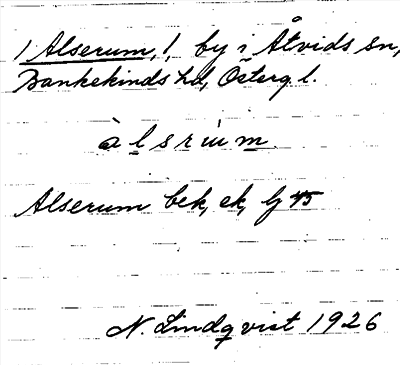 1 Alserum, !, by i Åtvids sn,
Bankekinds hd, Österg l.
àlsrùm
Alserum bek, ek, lj 45
N. Lindqvist 1926